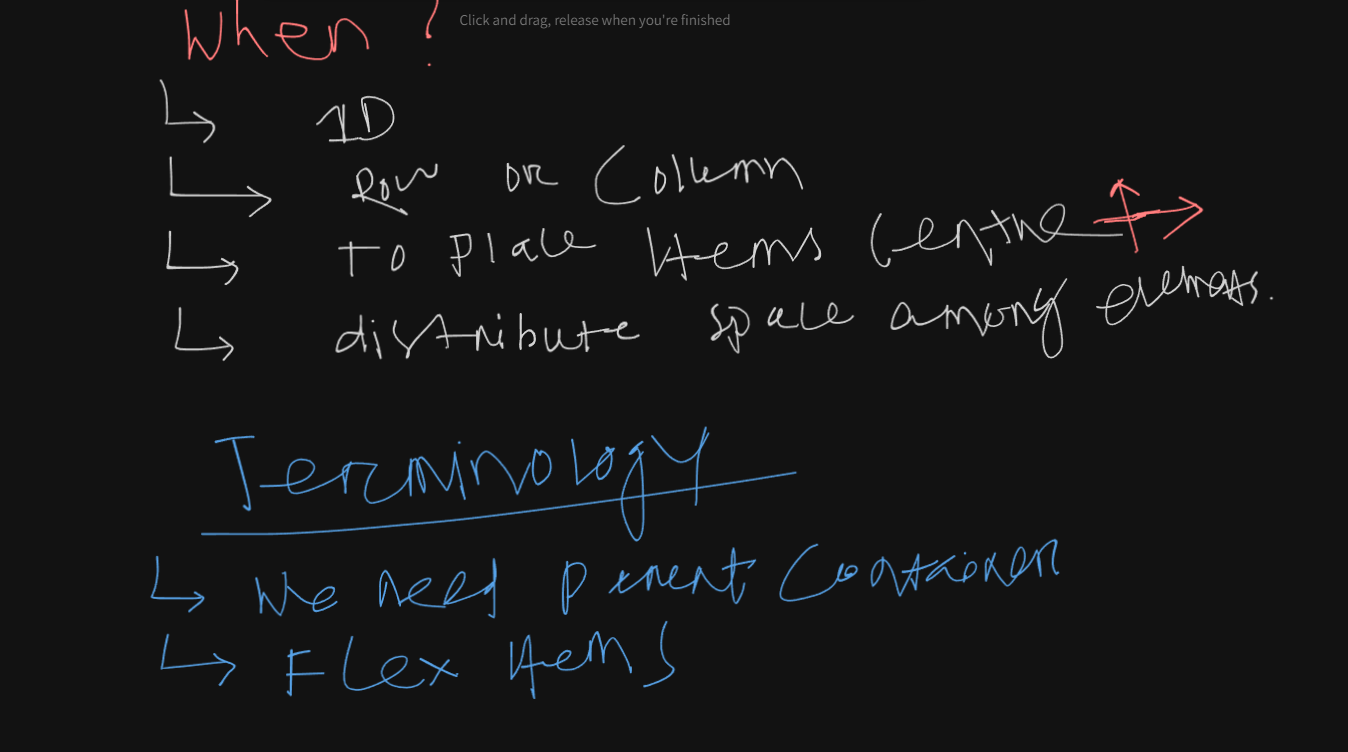 When ?
Click and drag, release when you're finished
1D
Row or Column
To Place Items (entre
distribute space among elements.
Terminology
We need parent Container
Flex Items